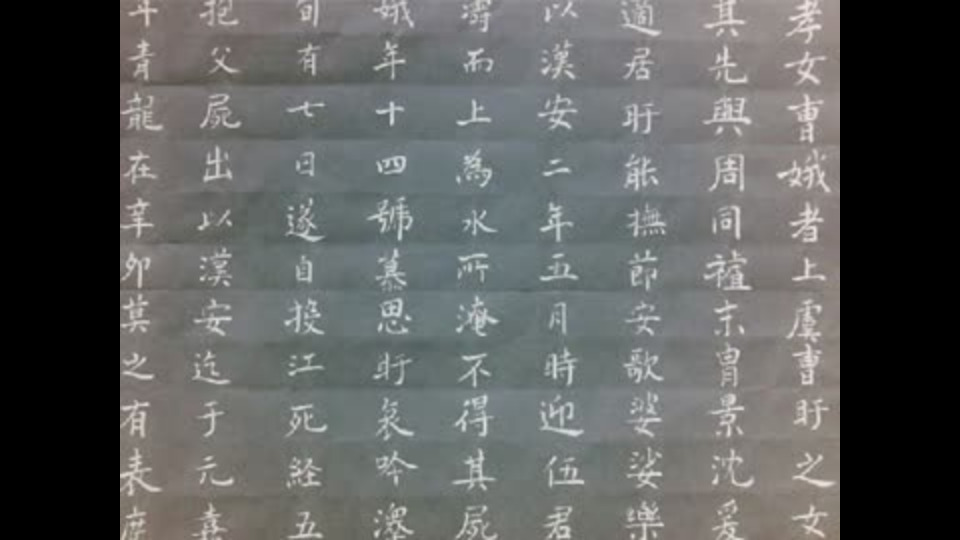 孝女曹娥者上虞曹盱之女
其先與周同禮末胄景沈爰
適居盱能撫節安歌婆娑樂
以漢安二年五月時迎伍君
濤而上為水所淹不得其屍
娥年十四號慕思盱哀吟澤
旬有七日遂自投江死経五
抱父屍出以漢安迄于元嘉
年青龍在辛卯莫之有表度